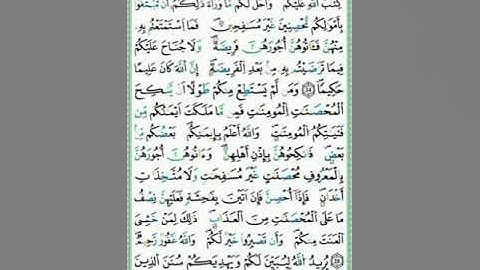 كِتَٰبَ ٱللَّهِ عَلَيْكُمْ وَأُحِلَّ لَكُم مَّا وَرَآءَ ذَٰلِكُمْ أَن تَبْتَغُوا۟
بِأَمْوَٰلِكُم مُّحْصِنِينَ غَيْرَ مُسَٰفِحِينَ فَمَا ٱسْتَمْتَعْتُم بِهِۦ
مِنْهُنَّ فَـَٔاتُوهُنَّ أُجُورَهُنَّ فَرِيضَةً وَلَا جُنَاحَ عَلَيْكُمْ
فِيمَا تَرَٰضَيْتُم بِهِۦ مِنۢ بَعْدِ ٱلْفَرِيضَةِ إِنَّ ٱللَّهَ كَانَ عَلِيمًا
حَكِيمًا وَمَن لَّمْ يَسْتَطِعْ مِنكُمْ طَوْلًا أَن يَنكِحَ
ٱلْمُحْصَنَٰتِ ٱلْمُومِنَٰتِ فَمِن مَّا مَلَكَتَ اَيْمَٰنُكُم مِّن
فَتَيَٰتِكُمُ ٱلْمُومِنَٰتِ وَٱللَّهُ أَعْلَمُ بِإِيمَٰنِكُم بَعْضُكُم مِّنۢ
بَعْضٍ فَٱنكِحُوهُنَّ بِإِذْنِ أَهْلِهِنَّ وَءَاتُوهُنَّ أُجُورَهُنَّ
بِٱلْمَعْرُوفِ مُحْصَنَٰتٍ غَيْرَ مُسَٰفِحَٰتٍ وَلَا مُتَّخِذَٰتِ
أَخْدَانٍ فَإِذَآ أُحْصِنَّ فَإِنَ اَتَيْنَ بِفَٰحِشَةٍ فَعَلَيْهِنَّ نِصْفُ
مَا عَلَى ٱلْمُحْصَنَٰتِ مِنَ ٱلْعَذَابِ ذَٰلِكَ لِمَنْ خَشِيَ
ٱلْعَنَتَ مِنكُمْ وَأَن تَصْبِرُوا۟ خَيْرٌ لَّكُمْ وَٱللَّهُ غَفُورٌ رَّحِيمٌ
يُرِيدُ ٱللَّهُ لِيُبَيِّنَ لَكُمْ وَيَهْدِيَكُمْ سُنَنَ ٱلَّذِينَ